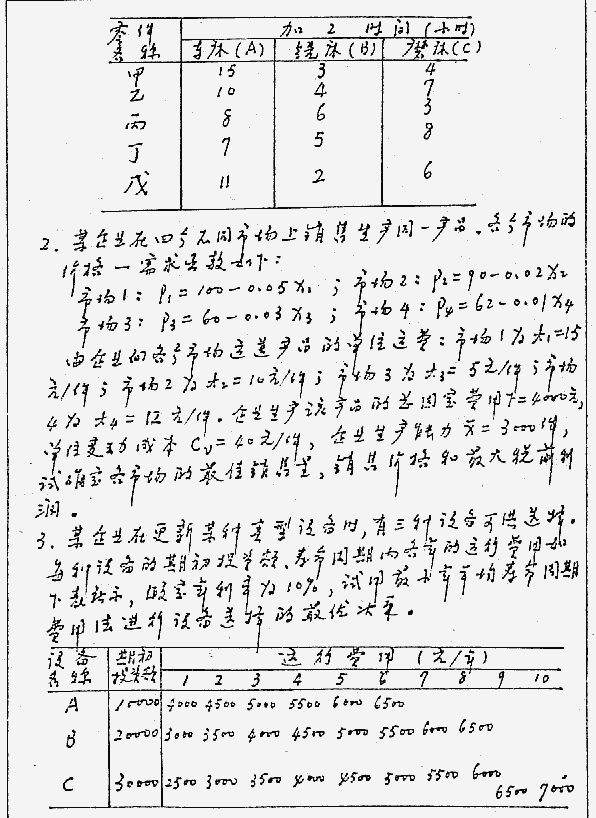 零件名称 加工时间(小时)
车床(A) 铣床(B) 磨床(C)
甲 15 3 4
乙 10 4 7
丙 8 6 3
丁 7 5 8
戊 11 2 6
2. 某企业在四个不同市场上销售生产同一产品。各个市场的
价格一需求函数如下:
市场1: P₁=100-0.05X₁ ; 市场2: P₂=90-0.02X₂
市场3: P₃=60-0.03X₃ ; 市场4: P₄=62-0.01X₄
由企业向各个市场运送产品的单位运费:市场1为t₁=15
元/件;市场2为t₂=10元/件;市场3为t₃=5元/件;市场
4为t₄=12元/件。企业生产该产品的总固定费用F=4000元,
单位变动成本Cv=40元/件,企业生产能力x̄=3000件,
试确定各市场的最佳销售量,销售价格和最大税前利
润。
3. 某企业在更新某种类型设备时,有三种设备可供选择。
每种设备的期初投资额、寿命周期内各年的运行费用如
下表所示,假定年利率为10%,试用最小年平均寿命周期
费用法进行设备选择的最优决策。
设备名称 期初投资额 运行费用(元/年)
1 2 3 4 5 6 7 8 9 10
A 10000 4000 4500 5000 5500 6000 6500
B 20000 3000 3500 4000 4500 5000 5500 6000 6500
C 30000 2500 3000 3500 4000 4500 5000 5500 6000 6500 7000